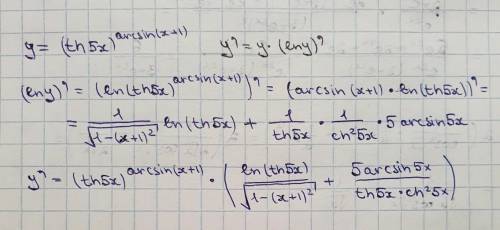 y = (th5x)^{arcsin(x+1)}    y' = y · (lny)'
(lny)' = (ln(th5x)^{arcsin(x+1)})' = (arcsin(x+1) · ln(th5x))' =
= \frac{1}{\sqrt{1-(x+1)^2}} ln(th5x) + \frac{1}{th5x} · \frac{1}{ch^25x} · 5arcsin5x.
y' = (th5x)^{arcsin(x+1)} · (\frac{ln(th5x)}{\sqrt{1-(x+1)^2}} + \frac{5arcsin5x}{th5x·ch^25x})